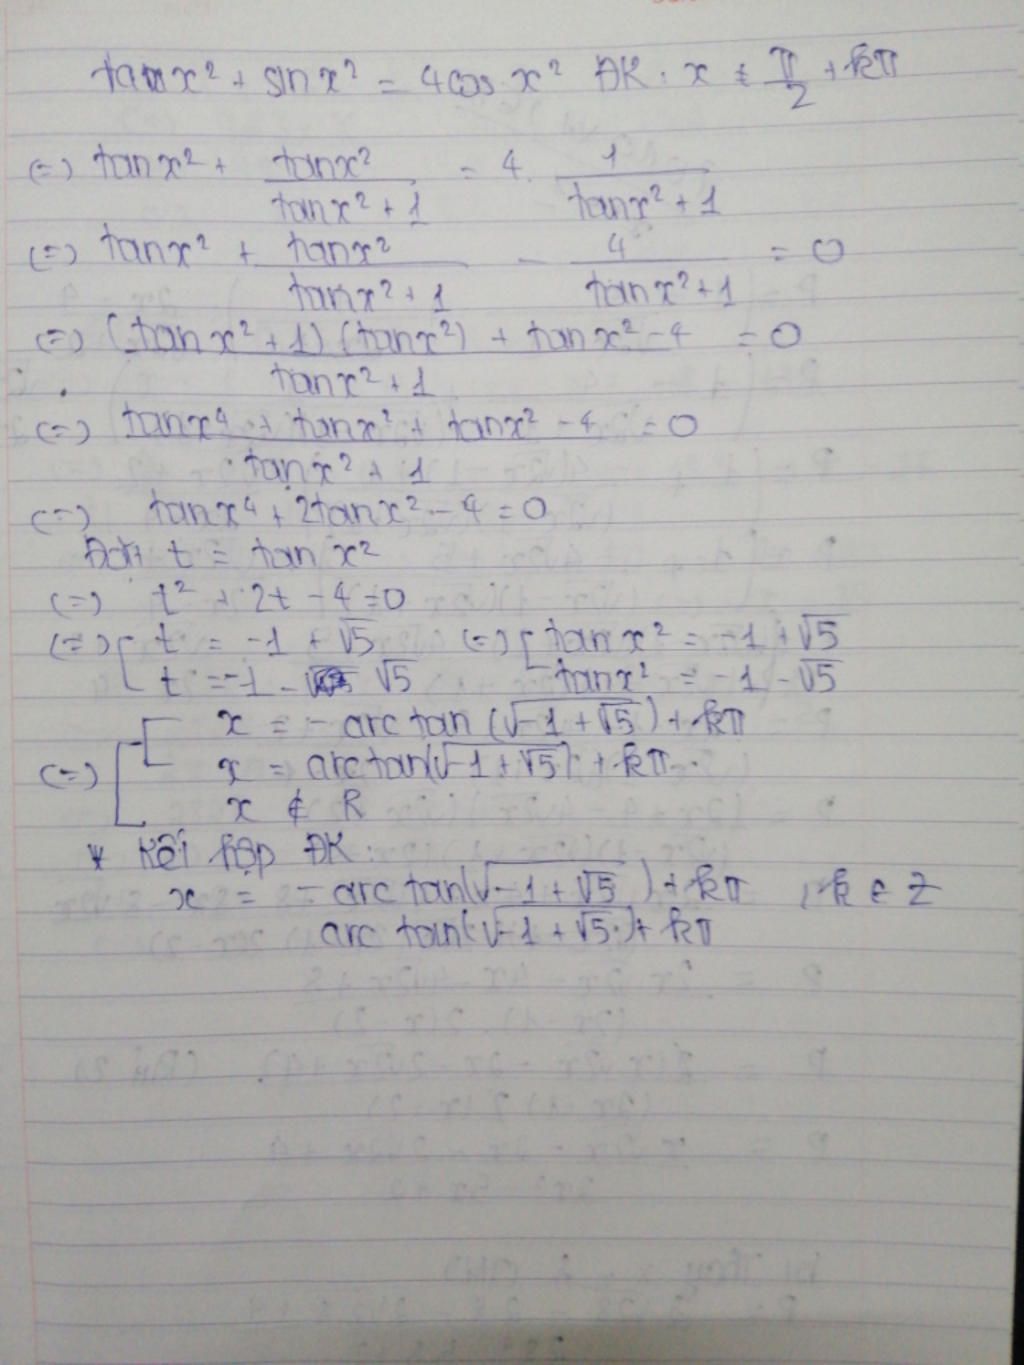 tan x² + sin x² = 4cos x² ĐK: x ≠ π/2 + kπ
(=) tan x² + tan x²/(tan x² + 1) = 4. 1/(tan x² + 1)
(=) tan x² + tan x²/(tan x² + 1) - 4/(tan x² + 1) = 0
(=) ((tan x² + 1)(tan x²) + tan x² - 4)/(tan x² + 1) = 0
(=) (tan x⁴ + tan x² + tan x² - 4)/(tan x² + 1) = 0
(=) tan x⁴ + 2tan x² - 4 = 0
Đặt t = tan x²
(=) t² + 2t - 4 = 0
(=) [ t = -1 + √5 (=) [ tan x² = -1 + √5
t = -1 - √5 tan x² = -1 - √5
x = - arc tan (√(-1 + √5)) + kπ
(=) x = arc tan(√(-1 + √5)) + kπ
x ∉ R
* Kết hợp ĐK:
x = - arc tan(√(-1 + √5)) + kπ , k ∈ Z
arc tan(√(-1 + √5)) + kπ